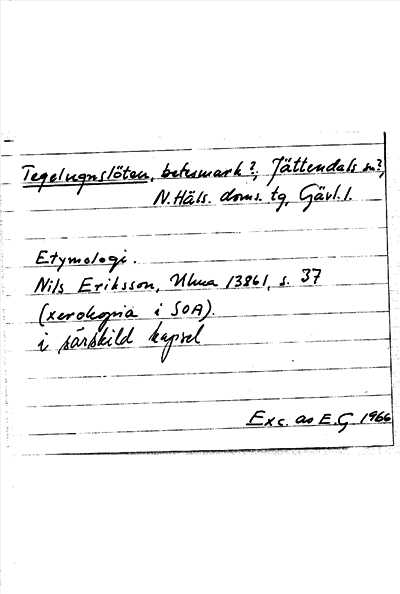 Tegelugnslöten, betesmark?; Jättendals sn?,
N. Häls. doms. tg, Gävl. l.
Etymologi.
Nils Eriksson, Ulma 13861, s. 37
(xerokopia i SOA).
i särskild kapsel
Exc. av E.G. 1966